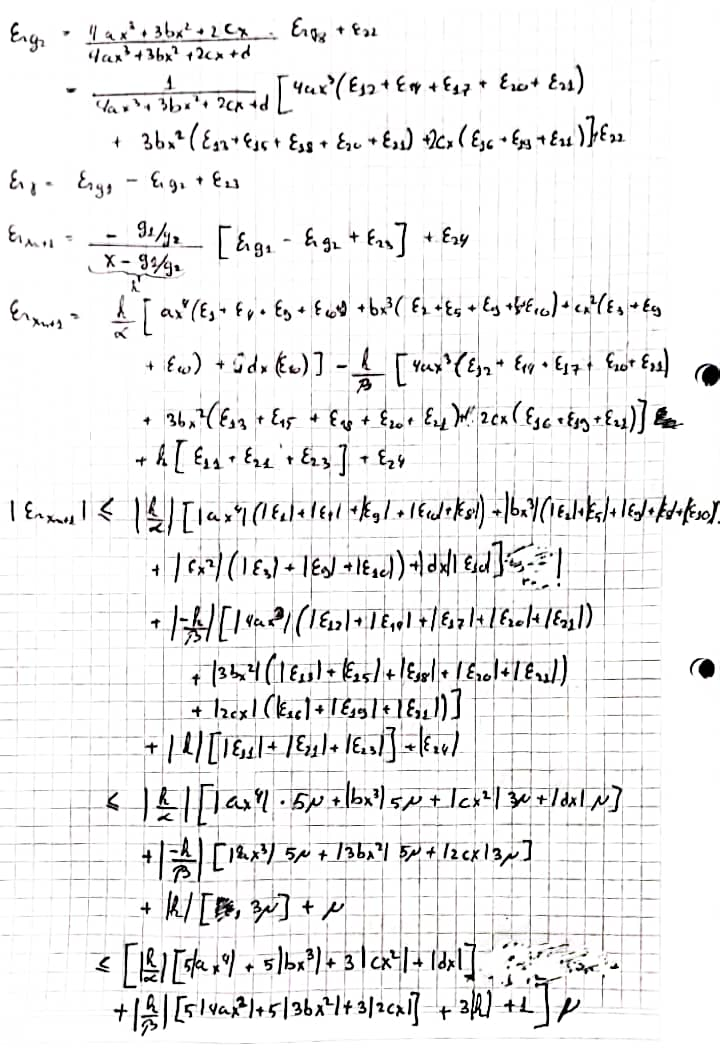 εrg2 = (4ax³ + 3bx² + 2cx)/(4ax³ + 3bx² + 2cx + d) · εrg8 + ε22
= 1/(4ax³ + 3bx² + 2cx + d) [4ax³(ε12 + ε14 + ε17 + ε20 + ε21)
+ 3bx²(ε13 + ε15 + ε18 + ε20 + ε21) + 2cx(ε16 + ε19 + ε21)] + ε22
εrg = εrg1 − εrg2 + ε23
εrxn+1 = (− g1/g2)/(x − g1/g2) [εrg1 − εrg2 + ε23] + ε24
h
εrxn+1 = h/α [ax⁴(ε1 + ε4 + ε9 + ε10 + bx³(ε2 + ε5 + ε9 + ε10) + cx²(ε3 + ε9
+ ε10) + dx(ε10)] − h/β [4ax³(ε12 + ε14 + ε17 + ε20 + ε21)
+ 3bx²(ε13 + ε15 + ε18 + ε20 + ε21) + 2cx(ε16 + ε19 + ε21)]
+ h[ε11 + ε21 + ε23] + ε24
|εrxn+1| ≤ |h/α| [|ax⁴|(|ε1| + |ε4| + |ε9| + |ε10| + |ε8|) + |bx³|(|ε2| + |ε5| + |ε9| + |ε8| + |ε10|)
+ |cx²|(|ε3| + |ε9| + |ε10|) + |dx||ε10|]
+ |−h/β| [|4ax³|(|ε12| + |ε14| + |ε17| + |ε20| + |ε21|)
+ |3bx²|(|ε13| + |ε15| + |ε18| + |ε20| + |ε21|)
+ |2cx|(|ε16| + |ε19| + |ε21|)]
+ |h| [|ε11| + |ε21| + |ε23|] + |ε24|
≤ |h/α| [|ax⁴| · 5μ + |bx³| 5μ + |cx²| 3μ + |dx| μ]
+ |−h/β| [|4ax³| 5μ + |3bx²| 5μ + |2cx| 3μ]
+ |h| [3μ] + μ
≤ [|h/α| [5|ax⁴| + 5|bx³| + 3|cx²| + |dx|]
+ |h/β| [5|4ax²| + 5|3bx²| + 3|2cx|] + 3|h| + 1] μ